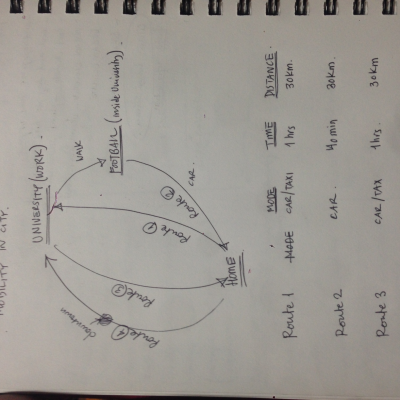 MOBILITY IN CITY.
UNIVERSITY (WORK).
WALK
FOOTBALL (inside University)
CAR.
Route 2
Route 1
Route 3
Route 4
downtown
HOME
MODE MODE TIME DISTANCE.
Route 1 CAR/TAXI 1 hrs 30km.
Route 2 CAR. 40 min 30km.
Route 3 CAR/TAX 1 hrs. 30km